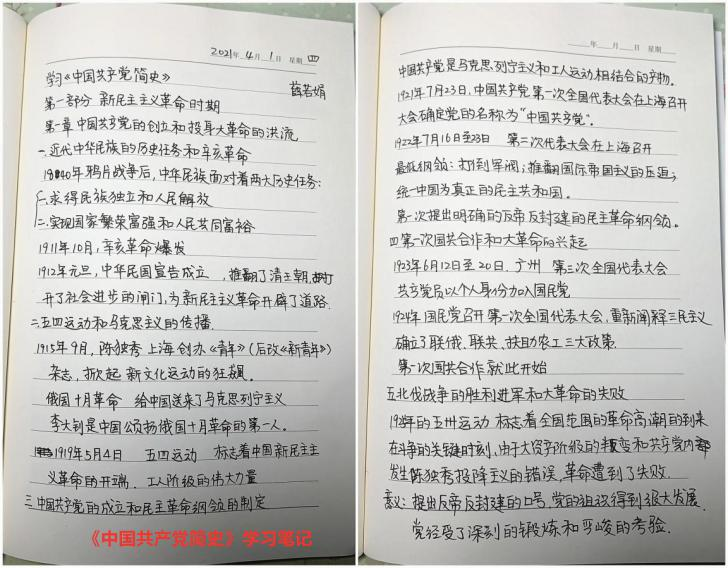 2021年 4月 1日 星期 四
学习《中国共产党简史》
薛若娟
第一部分 新民主主义革命时期
第一章 中国共产党的创立和投身大革命的洪流
一.近代中华民族的历史任务和辛亥革命
1840年鸦片战争后,中华民族面对着两大历史任务:
一.求得民族独立和人民解放
二.实现国家繁荣富强和人民共同富裕
1911年10月,辛亥革命爆发
1912年元旦,中华民国宣告成立 ,推翻了清王朝,打
开了社会进步的闸门,为新民主义革命开辟了道路.
二.五四运动和马克思主义的传播.
1915年9月,陈独秀 上海创办《青年》(后改《新青年》)
杂志,掀起 新文化运动的狂飙。
俄国十月革命 给中国送来了马克思列宁主义
李大钊是中国颂扬俄国十月革命的第一人。
1919年5月4日 五四运动 标志着中国新民主主
义革命的开端. 工人阶级的伟大力量
三.中国共产党的成立和民主革命纲领的制定
《中国共产党简史》学习笔记
年 月 日 星期
中国共产党是马克思列宁主义和工人运动相结合的产物。
1921年7月23日,中国共产党第一次全国代表大会在上海召开
大会确定党的名称为“中国共产党”。
1922年7月16日至23日 第二次代表大会在上海召开
最低纲领:打到军阀;推翻国际帝国主义的压迫;
统一中国为真正的民主共和国。
第一次提出明确的反帝反封建的民主革命纲领。
四.第一次国共合作和大革命的兴起
1923年6月12日至20日.广州 第三次全国代表大会
共产党员以个人身份加入国民党
1924年国民党召开第一次全国代表大会,重新阐释三民主义
确立了联俄、联共、扶助农工三大政策.
第一次国共合作就此开始
五.北伐战争的胜利进军和大革命的失败
1925年的五卅运动 标志着全国范围的革命高潮的到来
在斗争的关键时刻,由于大资产阶级的叛变和共产党内部
发生陈独秀投降主义的错误,革命遭到了失败.
意义:提出反帝反封建的口号,党的组织得到很大发展.
党经受了深刻的锻炼和严峻的考验.